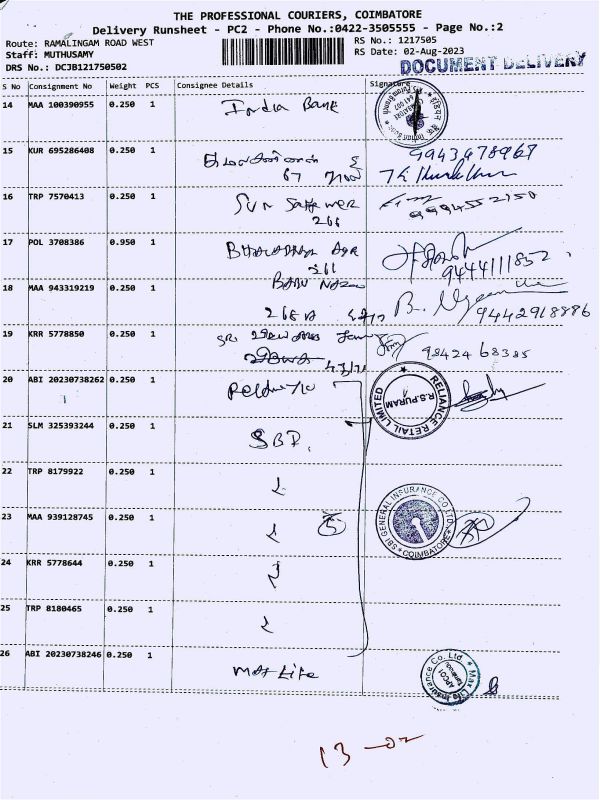 THE PROFESSIONAL COURIERS, COIMBATORE
Delivery Runsheet - PC2 - Phone No.:0422-3505555 - Page No.:2
Route: RAMALINGAM ROAD WEST
Staff: MUTHUSAMY
DRS No.: DCJB121750502
RS No.: 1217505
RS Date: 02-Aug-2023
DOCUMENT DELIVERY
S No Consignment No Weight PCS Consignee Details Signature
14 MAA 100390955 0.250 1 India Bank
15 KUR 695286408 0.250 1 67 9943978967
16 TRP 7570413 0.250 1 Sun 266 9994552150
17 POL 3708386 0.950 1 261 9444111852
18 MAA 943319219 0.250 1 BABU 268 B. 9442918886
19 KRR 5778850 0.250 1 Sri 98424 68385
20 ABI 20230738262 0.250 1 RELIANCE RETAIL LIMITED R.S.PURAM
21 SLM 325393244 0.250 1 SBI.
22 TRP 8179922 0.250 1
23 MAA 939128745 0.250 1 5 SBI GENERAL INSURANCE CO.LTD. COIMBATORE
24 KRR 5778644 0.250 1
25 TRP 8180465 0.250 1
26 ABI 20230738246 0.250 1 Max Life Max Life Insurance Co. Ltd.
13 - 02